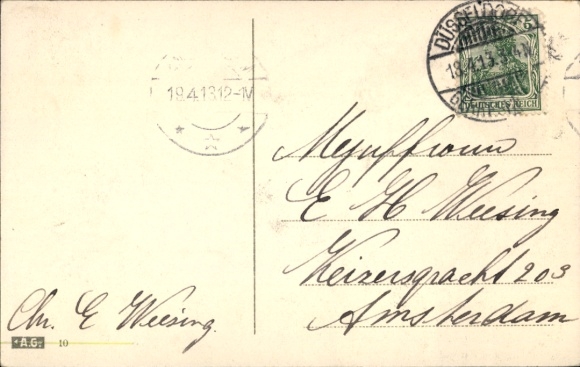 DÜSSELDORF
18.4.13.
DEUTSCHES REICH
19.4.13 12-1V
Mejuffrouw
E H Weesing
Keizersgracht 203
Amsterdam
Chr. E Weesing.
A.G. 10